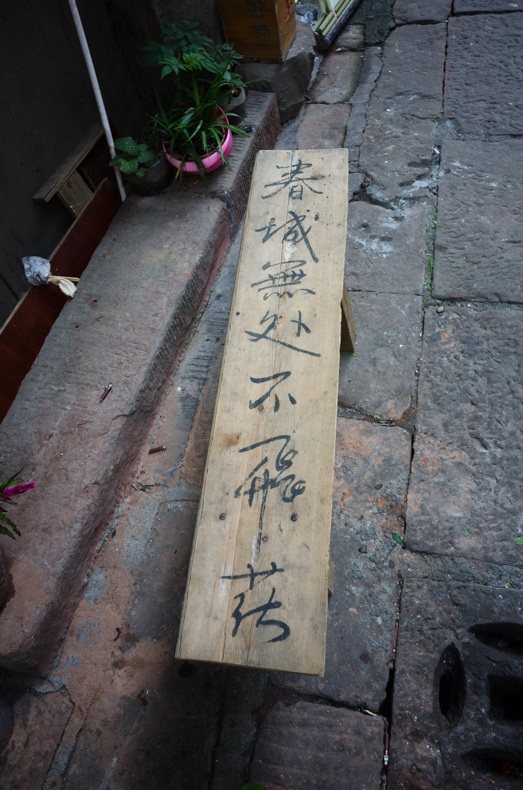 春城無处不飛花